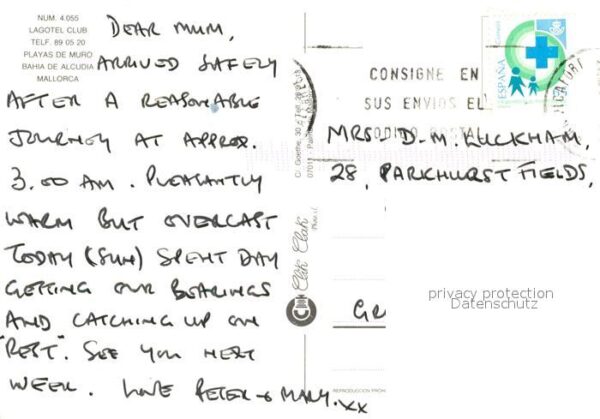 NUM. 4.055
LAGOTEL CLUB
TELF. 89 05 20
PLAYAS DE MURO
BAHIA DE ALCUDIA
MALLORCA
DEAR MUM,
ARRIVED SAFELY
AFTER A REASONABLE
JOURNEY AT APPROX.
3.00 AM. PLEASANTLY
WARM BUT OVERCAST
TODAY (SUN) SPENT DAY
GETTING OUR BEARINGS
AND CATCHING UP ON
"REST". SEE YOU NEXT
WEEK. LOVE PETER & MARY. xx
Clik Clak
CONSIGNE EN
SUS ENVIOS EL
CODIGO POSTAL
ESPAÑA
MRS D. M. LUCKHAM,
28, PARKHURST FIELDS,
GR
privacy protection
Datenschutz